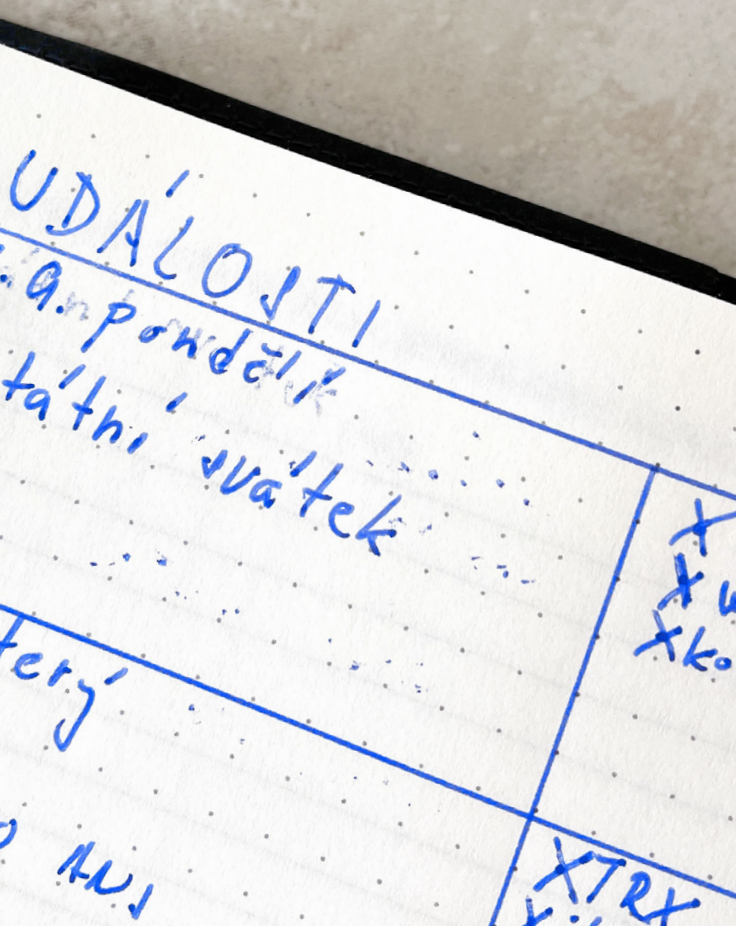 UDÁLOSTI
.9. pondělí
tátní svátek
X
X
Xko
terý
ANI
XTRX